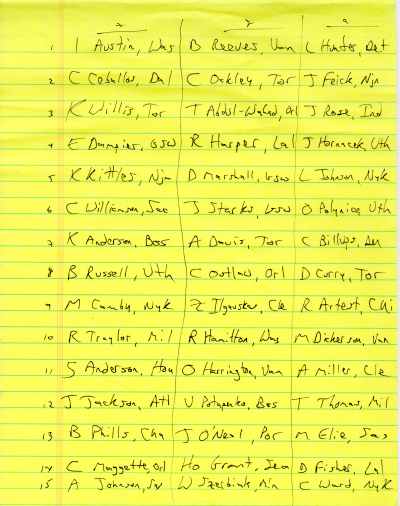 7 8 9
1 I Austin, Was B Reeves, Van L Hunter, Det
2 C Ceballos, Dal C Oakley, Tor J Feick, Njn
3 K Willis, Tor T Abdul-Wahad, Orl J Rose, Ind
4 E Dampier, GSW R Harper, Lal J Hornacek, Uth
5 K Kittles, Njn D Marshall, GSW L Johnson, Nyk
6 C Williamson, Sac J Starks, GSW O Polynice, Uth
7 K Anderson, Bos A Davis, Tor C Billups, Den
8 B Russell, Uth C Outlaw, Orl D Curry, Tor
9 M Camby, Nyk Z Ilgauskas, Cle R Artest, Chi
10 R Traylor, Mil R Hamilton, Was M Dickerson, Van
11 S Anderson, Hou O Harrington, Van A Miller, Cle
12 J Jackson, Atl V Potapenko, Bos T Thomas, Mil
13 B Phills, Cha J O'Neal, Por M Elie, Sas
14 C Maggette, Orl Ho Grant, Sea D Fisher, Lal
15 A Johnson, W Szczerbiak, Min C Ward, Nyk